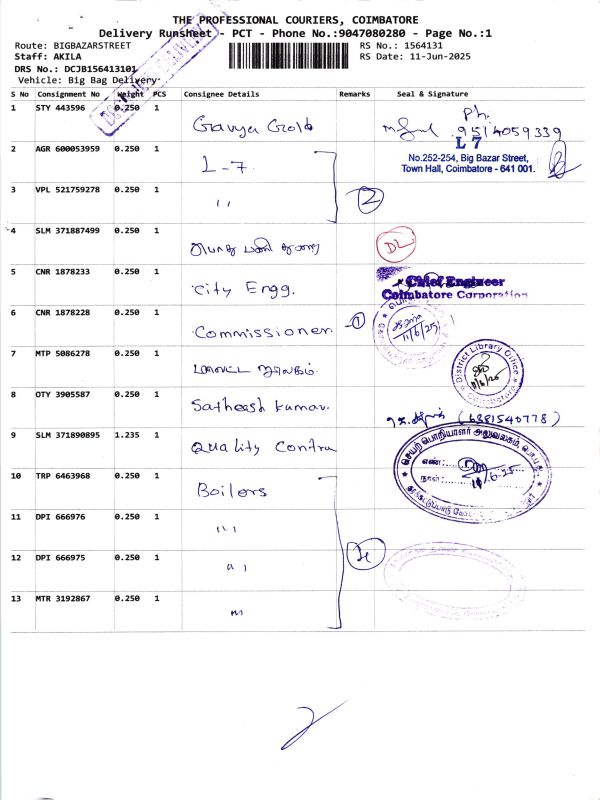 THE PROFESSIONAL COURIERS, COIMBATORE
Delivery Runsheet - PCT - Phone No.:9047080280 - Page No.:1
Route: BIGBAZARSTREET
RS No.: 1564131
Staff: AKILA
RS Date: 11-Jun-2025
DRS No.: DCJB156413101
Vehicle: Big Bag Delivery
S No Consignment No Weight PCS Consignee Details Remarks Seal & Signature
1 STY 443596 0.250 1
Ph. 9514059339
2 AGR 600053959 0.250 1 L-7
L 7
No.252-254, Big Bazar Street,
Town Hall, Coimbatore - 641 001.
3 VPL 521759278 0.250 1 " 2
4 SLM 371887499 0.250 1
DL
5 CNR 1878233 0.250 1 City Engg.
Chief Engineer
Coimbatore Corporation
6 CNR 1878228 0.250 1 Commissioner 1
11/6/25
7 MTP 5086278 0.250 1
District Library Office
Coimbatore
8 OTY 3905587 0.250 1 Satheesh Kumar.
(6381540778)
9 SLM 371890895 1.235 1 Quality Contro
செயற் பொறியாளர் அலுவலகம்
எண்:
நாள்:
10 TRP 6463968 0.250 1 Boilers
11 DPI 666976 0.250 1 "
12 DPI 666975 0.250 1 " 4
13 MTR 3192867 0.250 1 "